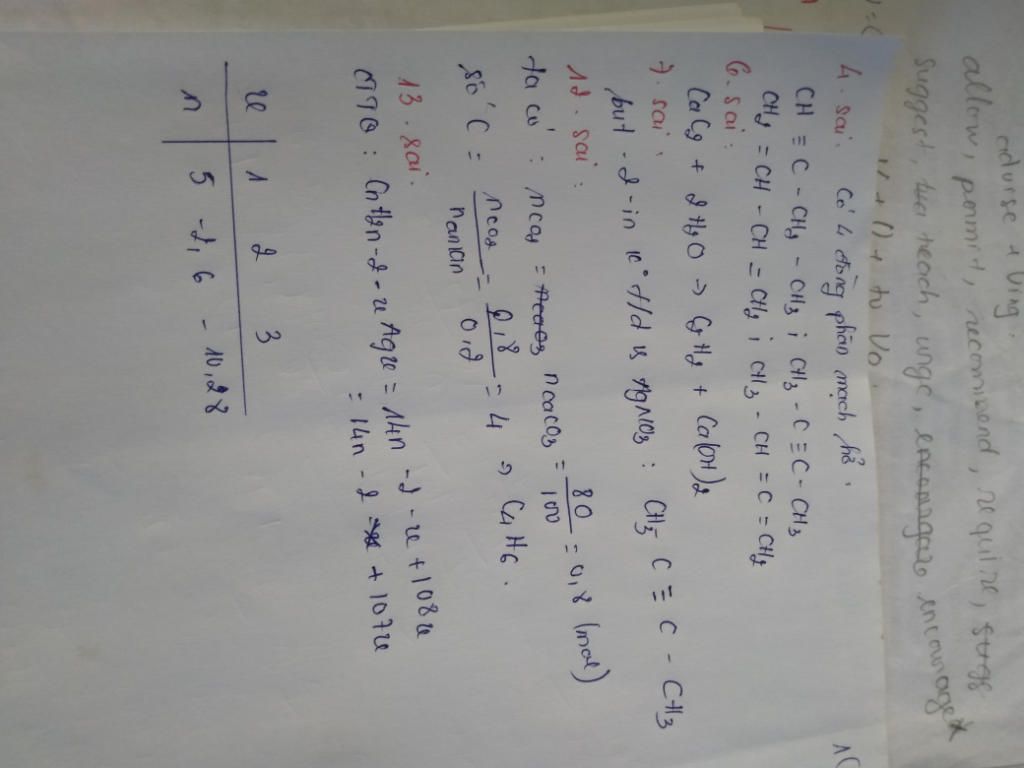 advise + Ving.
allow, permit, recommend, require,
suggest, teach, urge, encourage
4. sai. Có 4 đồng phân mạch hở.
CH ≡ C - CH2 - CH3 ; CH3 - C ≡ C - CH3
CH2 = CH - CH = CH2 ; CH3 - CH = C = CH2
6. sai:
CaC2 + 2H2O → C2H2 + Ca(OH)2
7. sai.
but - 2 - in k° t/d vs AgNO3 : CH3 - C ≡ C - CH3
12. sai :
ta có : nCO2 = nCaCO3 = 80/100 = 0,8 (mol)
số C = nCO2/nankin = 0,8/0,2 = 4 → C4H6.
13. sai.
CTTQ : CnH2n-2-xAgx = 14n - 2 - x + 108x
= 14n - 2 + 107x
x 1 2 3
n 5 -2,6 -10,28